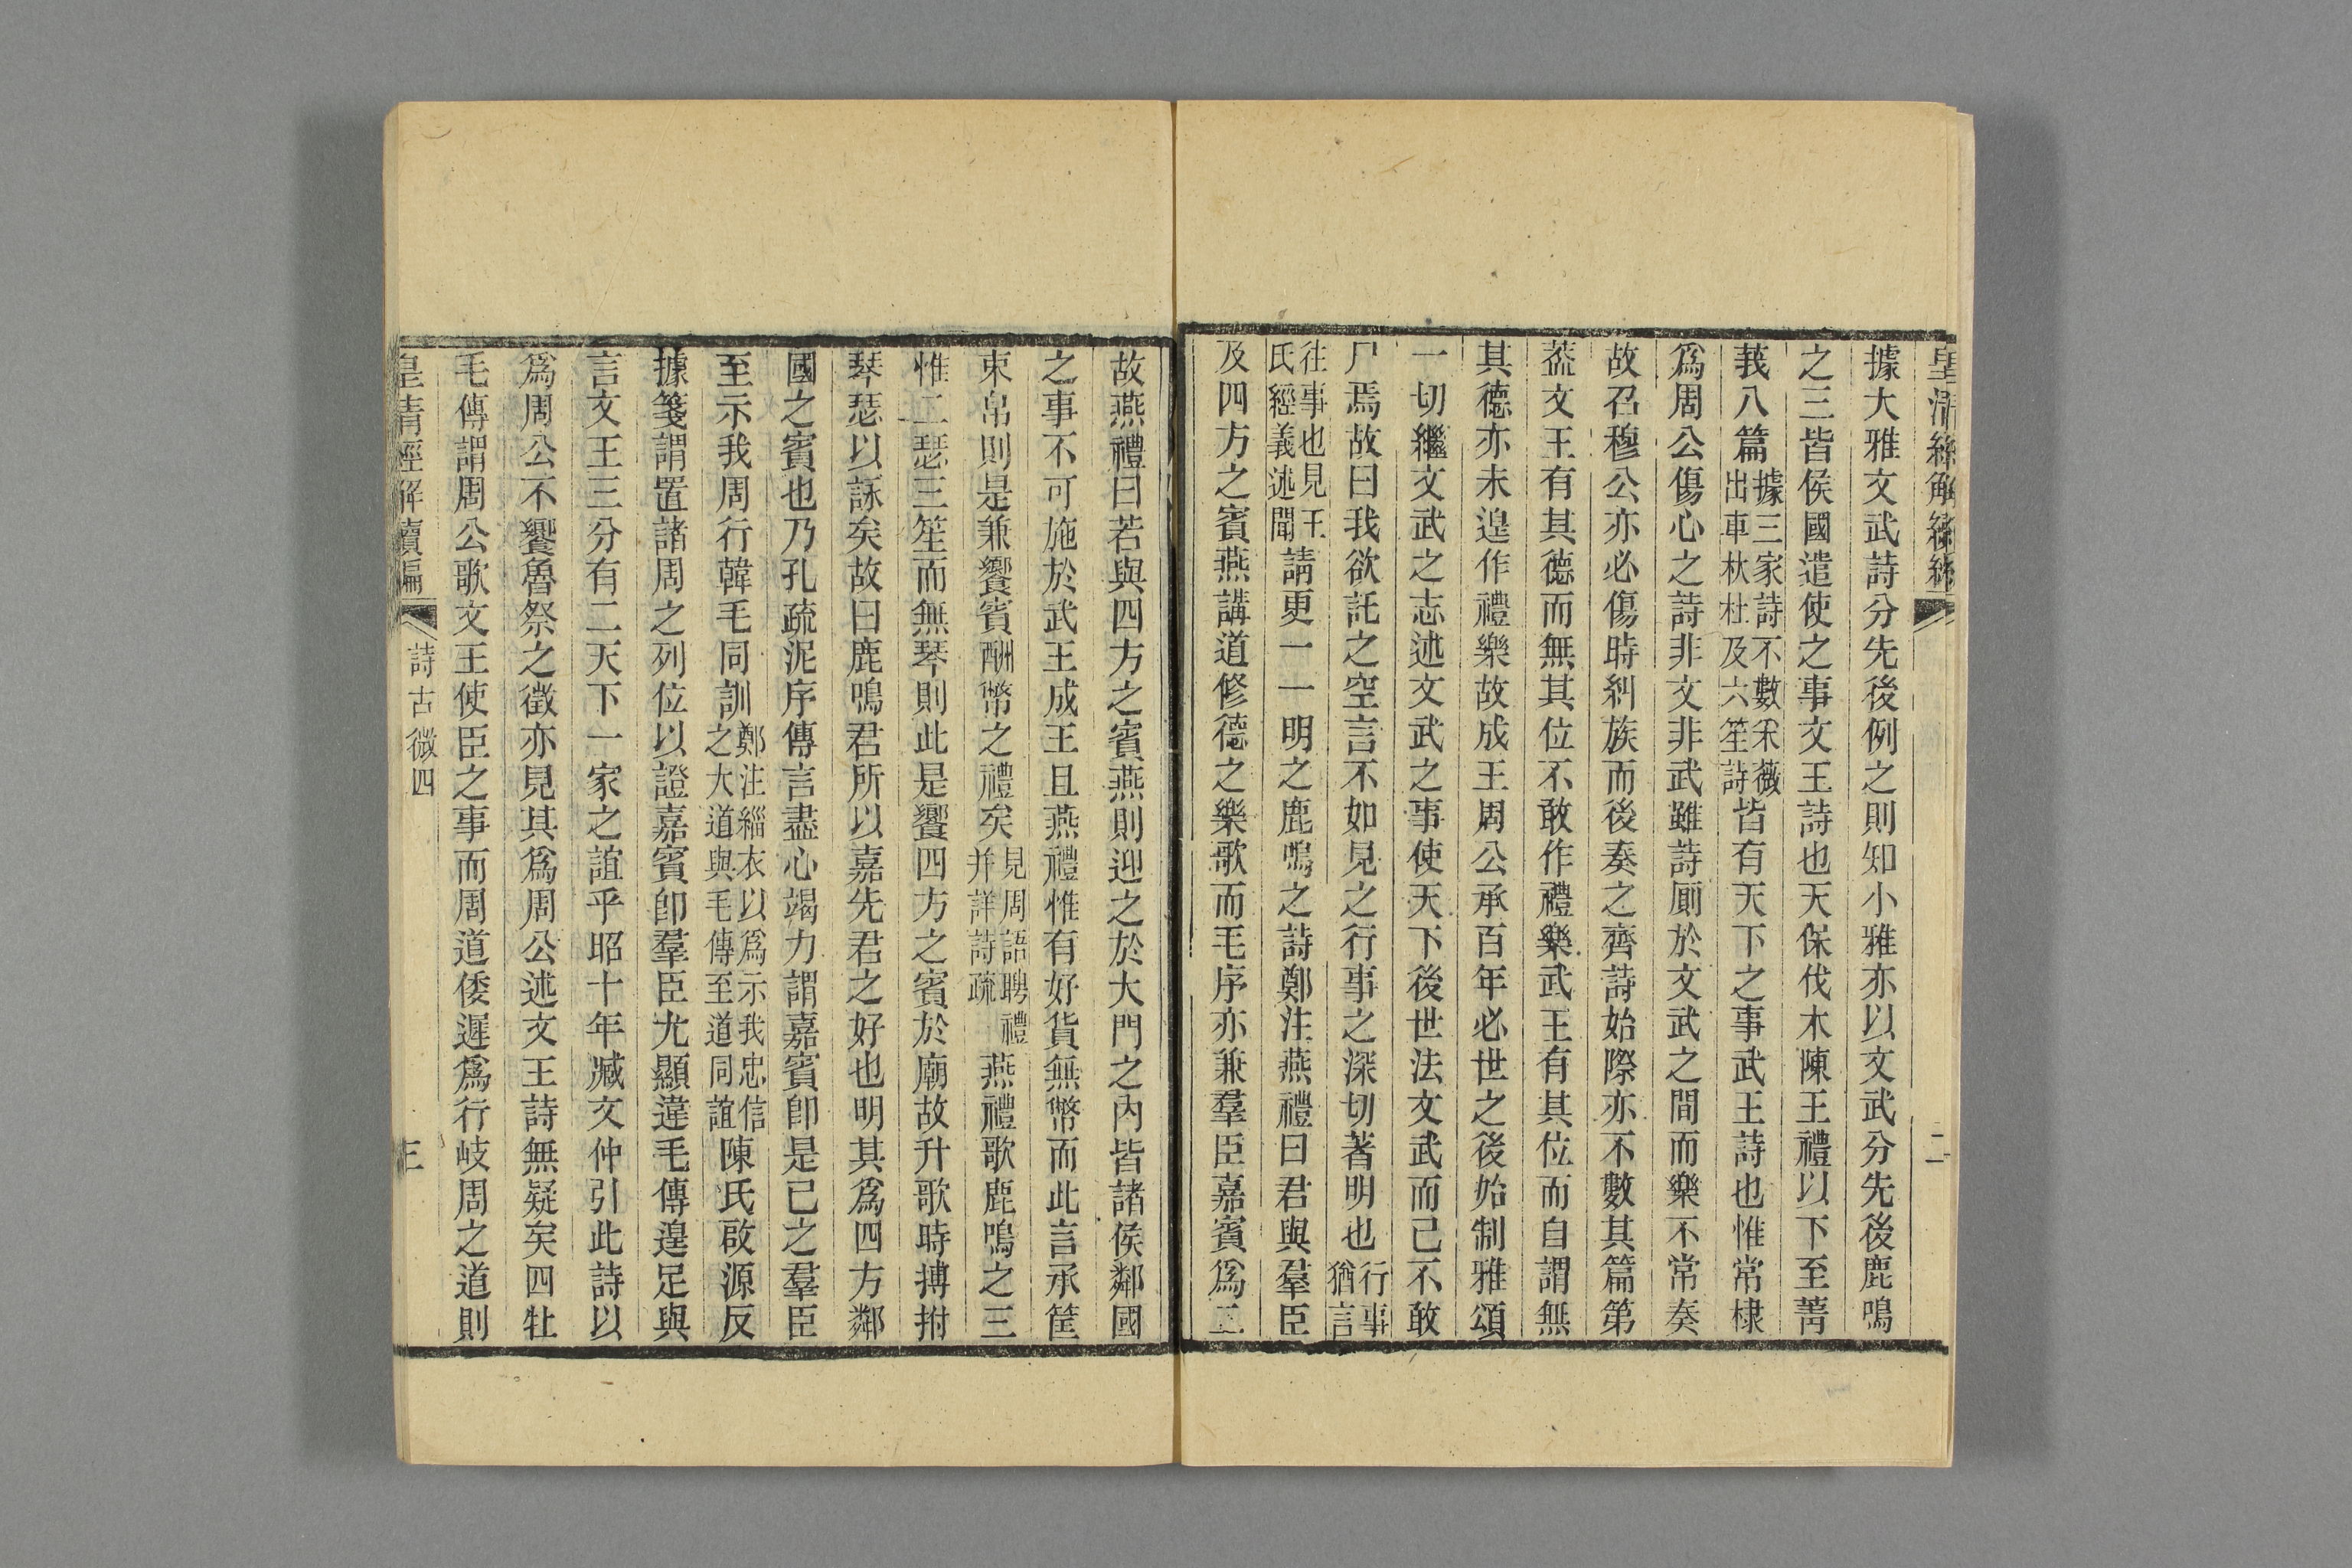 據大雅文武詩分先後例之則知小雅亦以文武分先後鹿鳴
之三皆侯國遣使之事文王詩也天保伐木陳王禮以下至菁
莪八篇據三家詩不數采薇出車杕杜及六笙詩皆有天下之事武王詩也惟常棣
爲周公傷心之詩非文非武雖詩厠於文武之間而樂不常奏
故召穆公亦必傷時糾族而後奏之齊詩始際亦不數其篇第
葢文王有其德而無其位不敢作禮樂武王有其位而自謂無
其德亦未遑作禮樂故成王周公承百年必世之後始制雅頌
一切繼文武之志述文武之事使天下後世法文武而已不敢
尸焉故曰我欲託之空言不如見之行事之深切著明也行事猶言
往事也見王氏經義述聞請更一一明之鹿鳴之詩鄭注燕禮曰君與羣臣
及四方之賓燕講道修德之樂歌而毛序亦兼羣臣嘉賓爲二
故燕禮曰若與四方之賓燕則迎之於大門之內皆諸侯鄰國
之事不可施於武王成王且燕禮惟有好貨無幣而此言承筐
束帛則是兼饗賓酬幣之禮矣見周語聘禮并詳詩疏燕禮歌鹿鳴之三
惟二瑟三笙而無琴則此是饗四方之賓於廟故升歌時搏拊
琴瑟以詠矣故曰鹿鳴君所以嘉先君之好也明其爲四方鄰
國之賓也乃孔疏泥序傳言盡心竭力謂嘉賓卽是已之羣臣
至示我周行韓毛同訓鄭注緇衣以爲示我忠信之大道與毛傳至道同誼陳氏啟源反
據箋謂置諸周之列位以證嘉賓卽羣臣尤顯違毛傳遑足與
言文王三分有二天下一家之誼乎昭十年臧文仲引此詩以
爲周公不饗魯祭之徵亦見其爲周公述文王詩無疑矣四牡
毛傳謂周公歌文王使臣之事而周道倭遲爲行岐周之道則
皇清經解續編
詩古微四
三